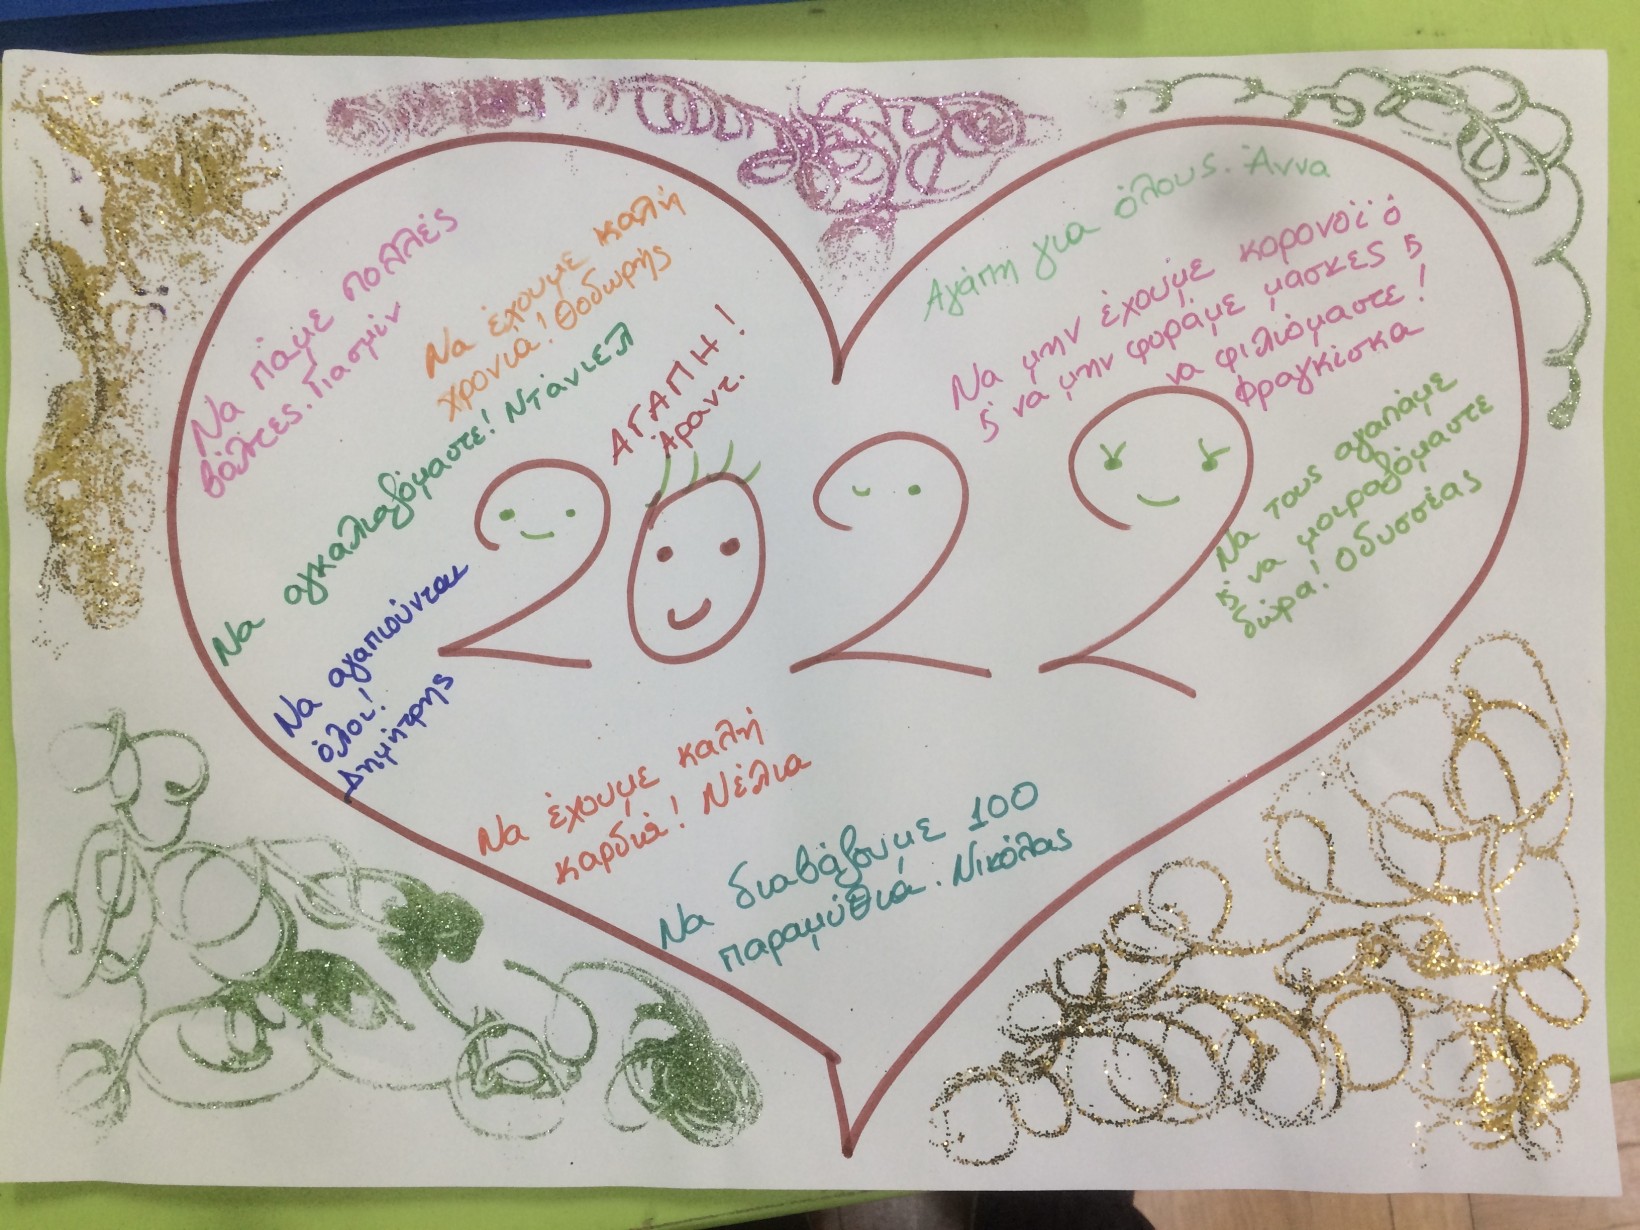 Να πάμε πολλές
βόλτες. Γιασμίν
Να έχουμε καλή
χρονιά! Θοδωρής
Να αγκαλιαζόμαστε! Ντάνιελ
ΑΓΑΠΗ!
Άραντ.
Αγάπη για όλους. Άννα
Να μην έχουμε κορονοϊό
ϗ να μην φοράμε μασκες ϗ
να φιλιόμαστε!
Φραγκίσκα
Να τους αγαπάμε
ϗ να μοιραζόμαστε
δώρα! Οδυσσέας
2022
Να αγαπιούνται
όλοι!
Δημήτρης
Να έχουμε καλή
καρδιά! Νέλια
Να διαβάζουμε 100
παραμύθια. Νικόλας